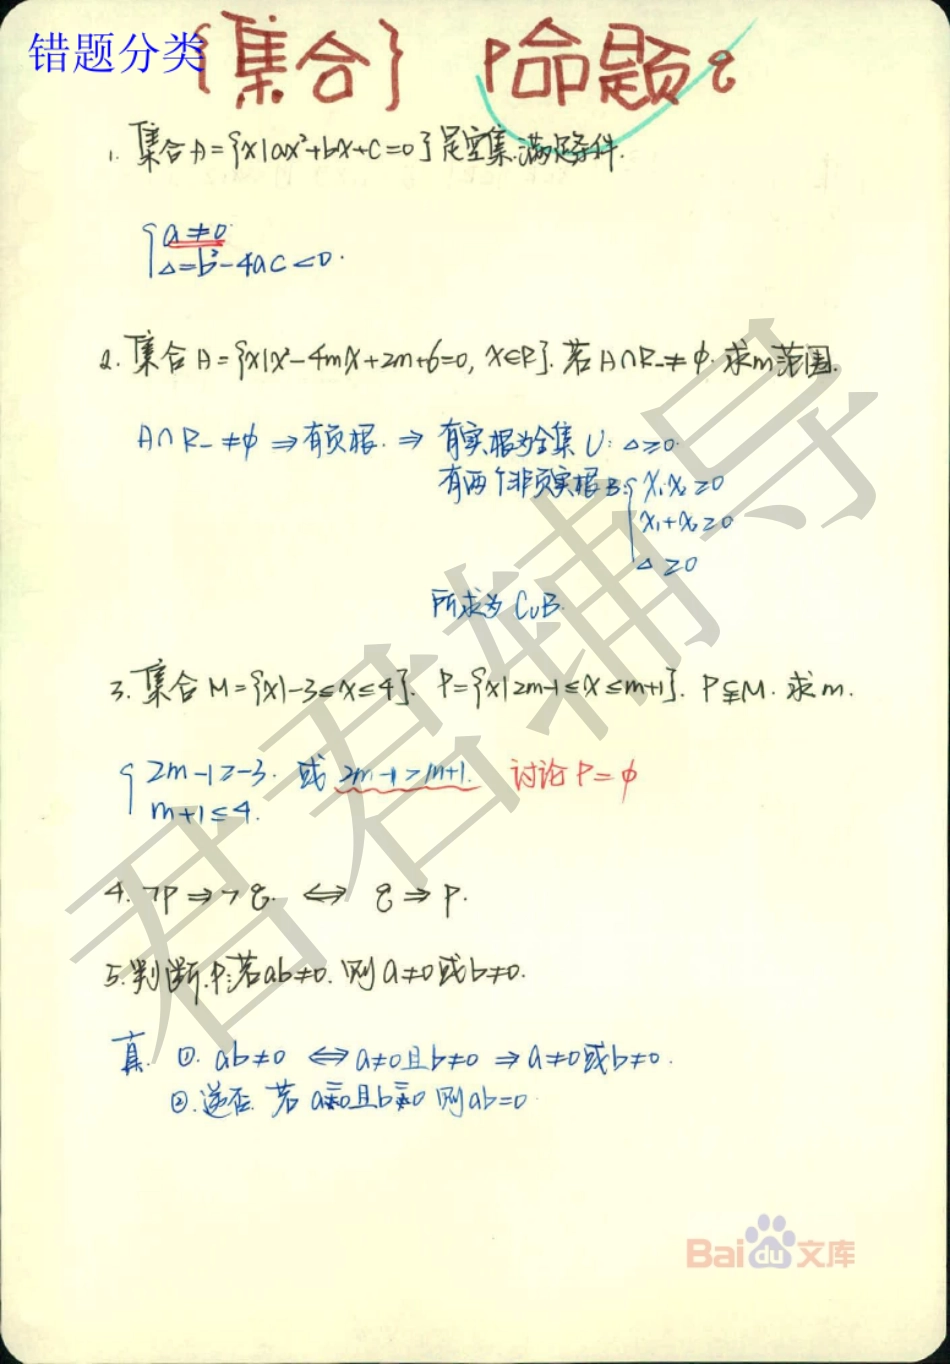 错题分类
{集合} p命题q
1. 集合A={x|ax²+bx+c=0}是空集.满足条件.
{a≠0
Δ=b²-4ac<0.
2. 集合A={x|x²-4mx+2m+6=0, x∈R}. 若A∩R₋≠φ. 求m范围.
A∩R₋≠φ ⇒有负根. ⇒ 有实根为全集U: Δ≥0.
有两个非负实根B:{x₁x₂≥0
x₁+x₂≥0
Δ≥0
所求为CᵤB.
3. 集合M={x|-3≤x≤4}. P={x|2m-1≤x≤m+1}. P⊊M. 求m.
{2m-1≥-3. 或 2m-1>m+1. 讨论P=φ
m+1≤4.
4. ¬p⇒¬q. ⇔ q⇒p.
5.判断.p:若ab≠0.则a≠0或b≠0.
真. ①. ab≠0 ⇔a≠0且b≠0 ⇒a≠0或b≠0.
②.逆否. 若 a=0且b=0 则ab=0.
君君辅导
Bai du 文库